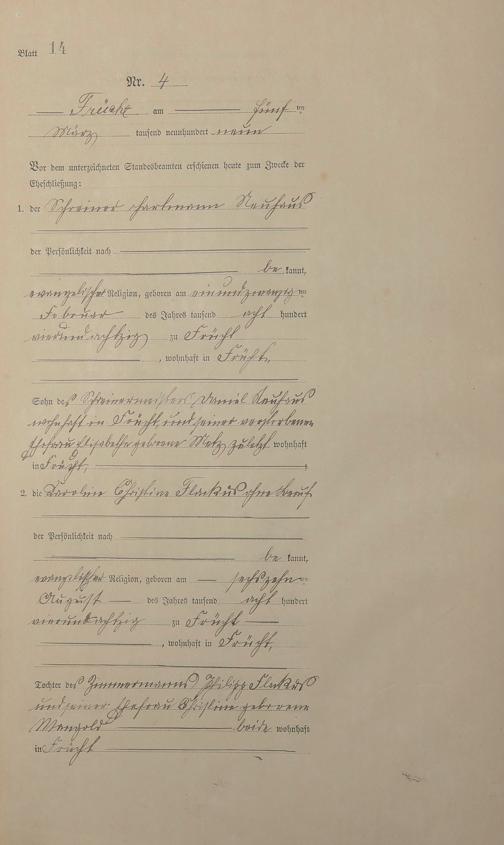 Blatt 14
Nr. 4
Frücht am fünf ten
März tausend neunhundert neun
Vor dem unterzeichneten Standesbeamten erschienen heute zum Zwecke der
Eheschließung:
1. der Schreiner Hartmann Neuhaus
der Persönlichkeit nach
be kannt,
evangelischer Religion, geboren am einundzwanzig ten
Februar des Jahres tausend acht hundert
vierundachtzig zu Frücht
, wohnhaft in Frücht,
Sohn des Schreinermeisters Daniel Neuhaus
wohnhaft in Frücht und seiner verstorbenen
Ehefrau Elisabethe geborene Metz zuletzt wohnhaft
in Frücht
2. die Caroline Christine Flackus ohne Beruf
der Persönlichkeit nach
be kannt,
evangelischer Religion, geboren am sechszehn ten
August des Jahres tausend acht hundert
vierundachtzig zu Frücht
, wohnhaft in Frücht,
Tochter des Zimmermanns Philipp Flackus
und seiner Ehefrau Christine geborene
Mangold beide wohnhaft
in Frücht